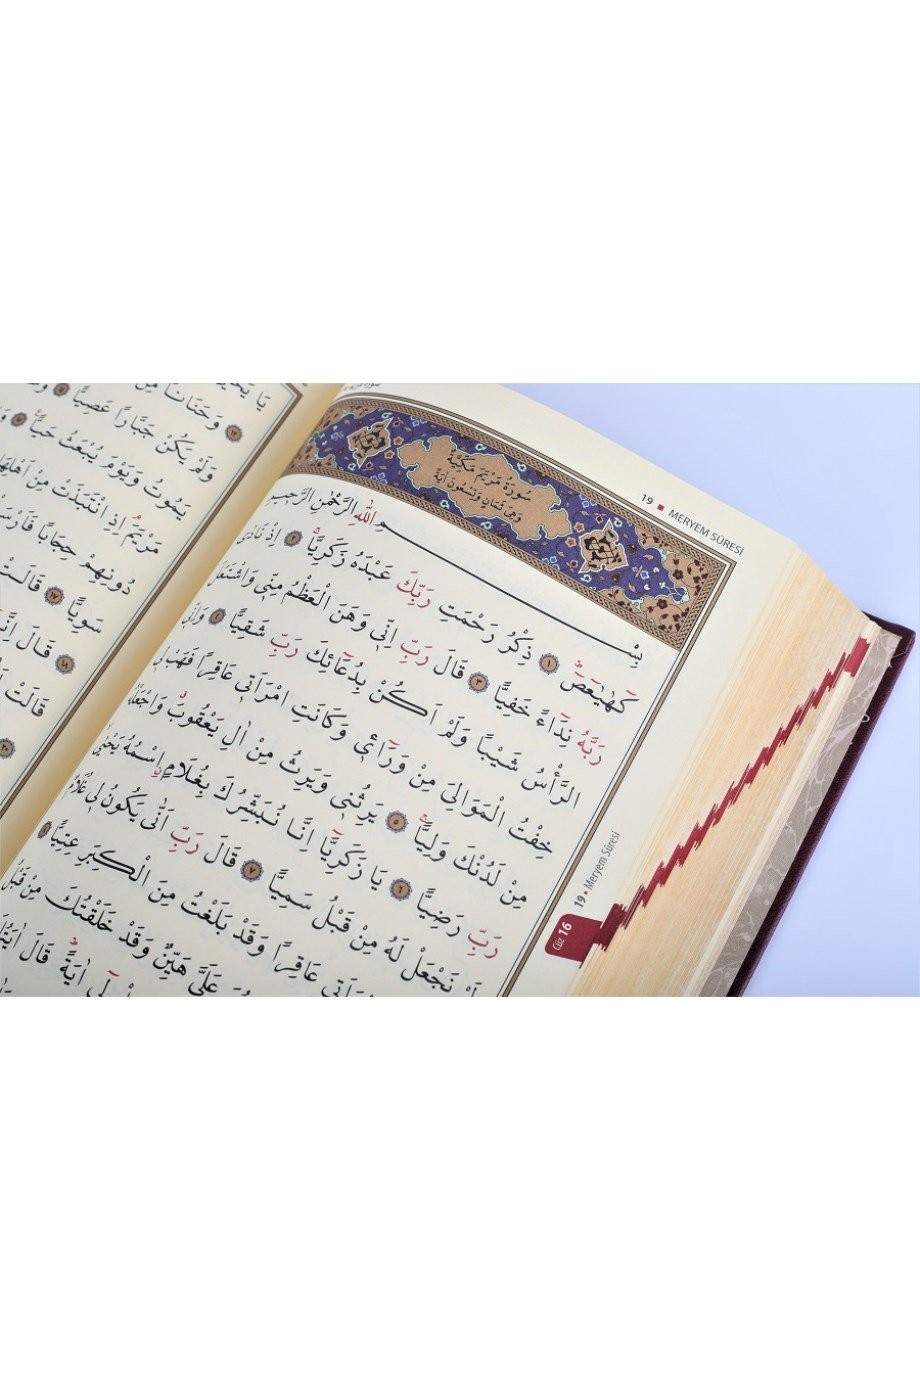 19 ▪ MERYEM SÛRESİ
سُورَةُ مَرْيَمَ مَكِّيَّةٌ
وَهِيَ ثَمَانٍ وَتِسْعُونَ اٰيَةً
بِسْمِ اللّٰهِ الرَّحْمٰنِ الرَّحٖيمِ
كٓهٰيٰعٓصٓ ﴿١﴾ ذِكْرُ رَحْمَتِ رَبِّكَ عَبْدَهُ زَكَرِيَّاۚ ﴿٢﴾ اِذْ نَادٰى
رَبَّهُ نِدَٓاءً خَفِيًّا ﴿٣﴾ قَالَ رَبِّ اِنّٖي وَهَنَ الْعَظْمُ مِنّٖي وَاشْتَعَلَ
الرَّأْسُ شَيْباً وَلَمْ اَكُنْ بِدُعَٓائِكَ رَبِّ شَقِيًّا ﴿٤﴾ وَاِنّٖي
خِفْتُ الْمَوَالِيَ مِنْ وَرَٓاءٖي وَكَانَتِ امْرَاَتٖي عَاقِرًا فَهَبْ لٖي
مِنْ لَدُنْكَ وَلِيًّاۙ ﴿٥﴾ يَرِثُنٖي وَيَرِثُ مِنْ اٰلِ يَعْقُوبَۗ وَاجْعَلْهُ
رَبِّ رَضِيًّا ﴿٦﴾ يَا زَكَرِيَّٓا اِنَّا نُبَشِّرُكَ بِغُلَامٍۨ اسْمُهُ يَحْيٰىۙ
لَمْ نَجْعَلْ لَهُ مِنْ قَبْلُ سَمِيًّا ﴿٧﴾ قَالَ رَبِّ اَنّٰى يَكُونُ لٖي غُلَامٌ
عَاقِرًا وَقَدْ بَلَغْتُ مِنَ الْكِبَرِ عِتِيًّا ﴿٨﴾
عَلَيَّ هَيِّنٌ وَقَدْ خَلَقْتُكَ مِنْ قَبْلُ
لٖٓي اٰيَةًۜ قَالَ اٰيَتُكَ
Cüz 16
19 • Meryem Sûresi
وَحَنَانًا مِنْ
﴿١٣﴾ وَ
وَلَمْ يَكُنْ جَبَّارًا عَصِيًّا ﴿١٤﴾
يَمُوتُ وَيَوْمَ يُبْعَثُ حَيًّا ﴿١٥﴾
مَرْيَمَۢ اِذِ انْتَبَذَتْ مِنْ اَهْلِهَا
دُونِهِمْ حِجَابًا فَاَرْسَ
سَوِيًّا ﴿١٧﴾ قَالَتْ
﴿١٨﴾ قَالَ
قَالَتْ